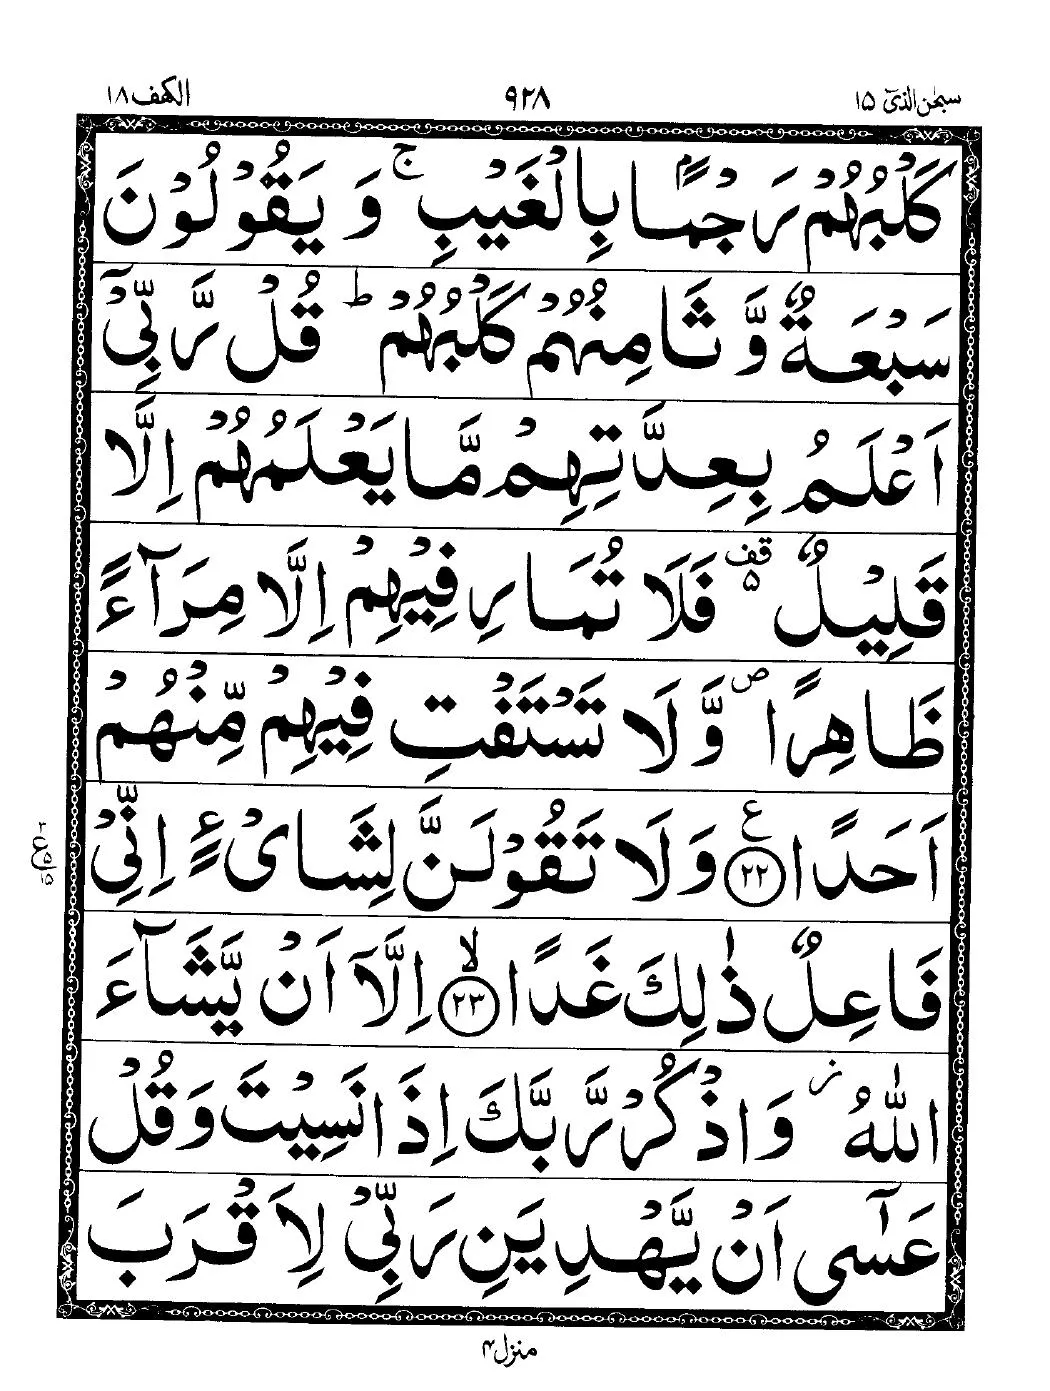 سبحٰن الذیٓ ۱۵
۹۲۸
الکہف ۱۸
كَلْبُهُمْ رَجْمًۢا بِالْغَيْبِ ۚ وَيَقُوْلُوْنَ
سَبْعَةٌ وَّثَامِنُهُمْ كَلْبُهُمْ ؕ قُلْ رَّبِّيْۤ
اَعْلَمُ بِعِدَّتِهِمْ مَّا يَعْلَمُهُمْ اِلَّا
قَلِيْلٌ قف ۵ فَلَا تُمَارِ فِيْهِمْ اِلَّا مِرَآءً
ظَاهِرًا ص وَّلَا تَسْتَفْتِ فِيْهِمْ مِّنْهُمْ
اَحَدًا ع ۲۲ وَلَا تَقُوْلَنَّ لِشَایْءٍ اِنِّيْ
فَاعِلٌ ذٰلِكَ غَدًا لا ۲۳ اِلَّاۤ اَنْ يَّشَآءَ
اللّٰهُ ز وَاذْكُرْ رَّبَّكَ اِذَا نَسِيْتَ وَقُلْ
عَسٰۤى اَنْ يَّهْدِيَنِ رَبِّيْ لِاَقْرَبَ
منزل ۴